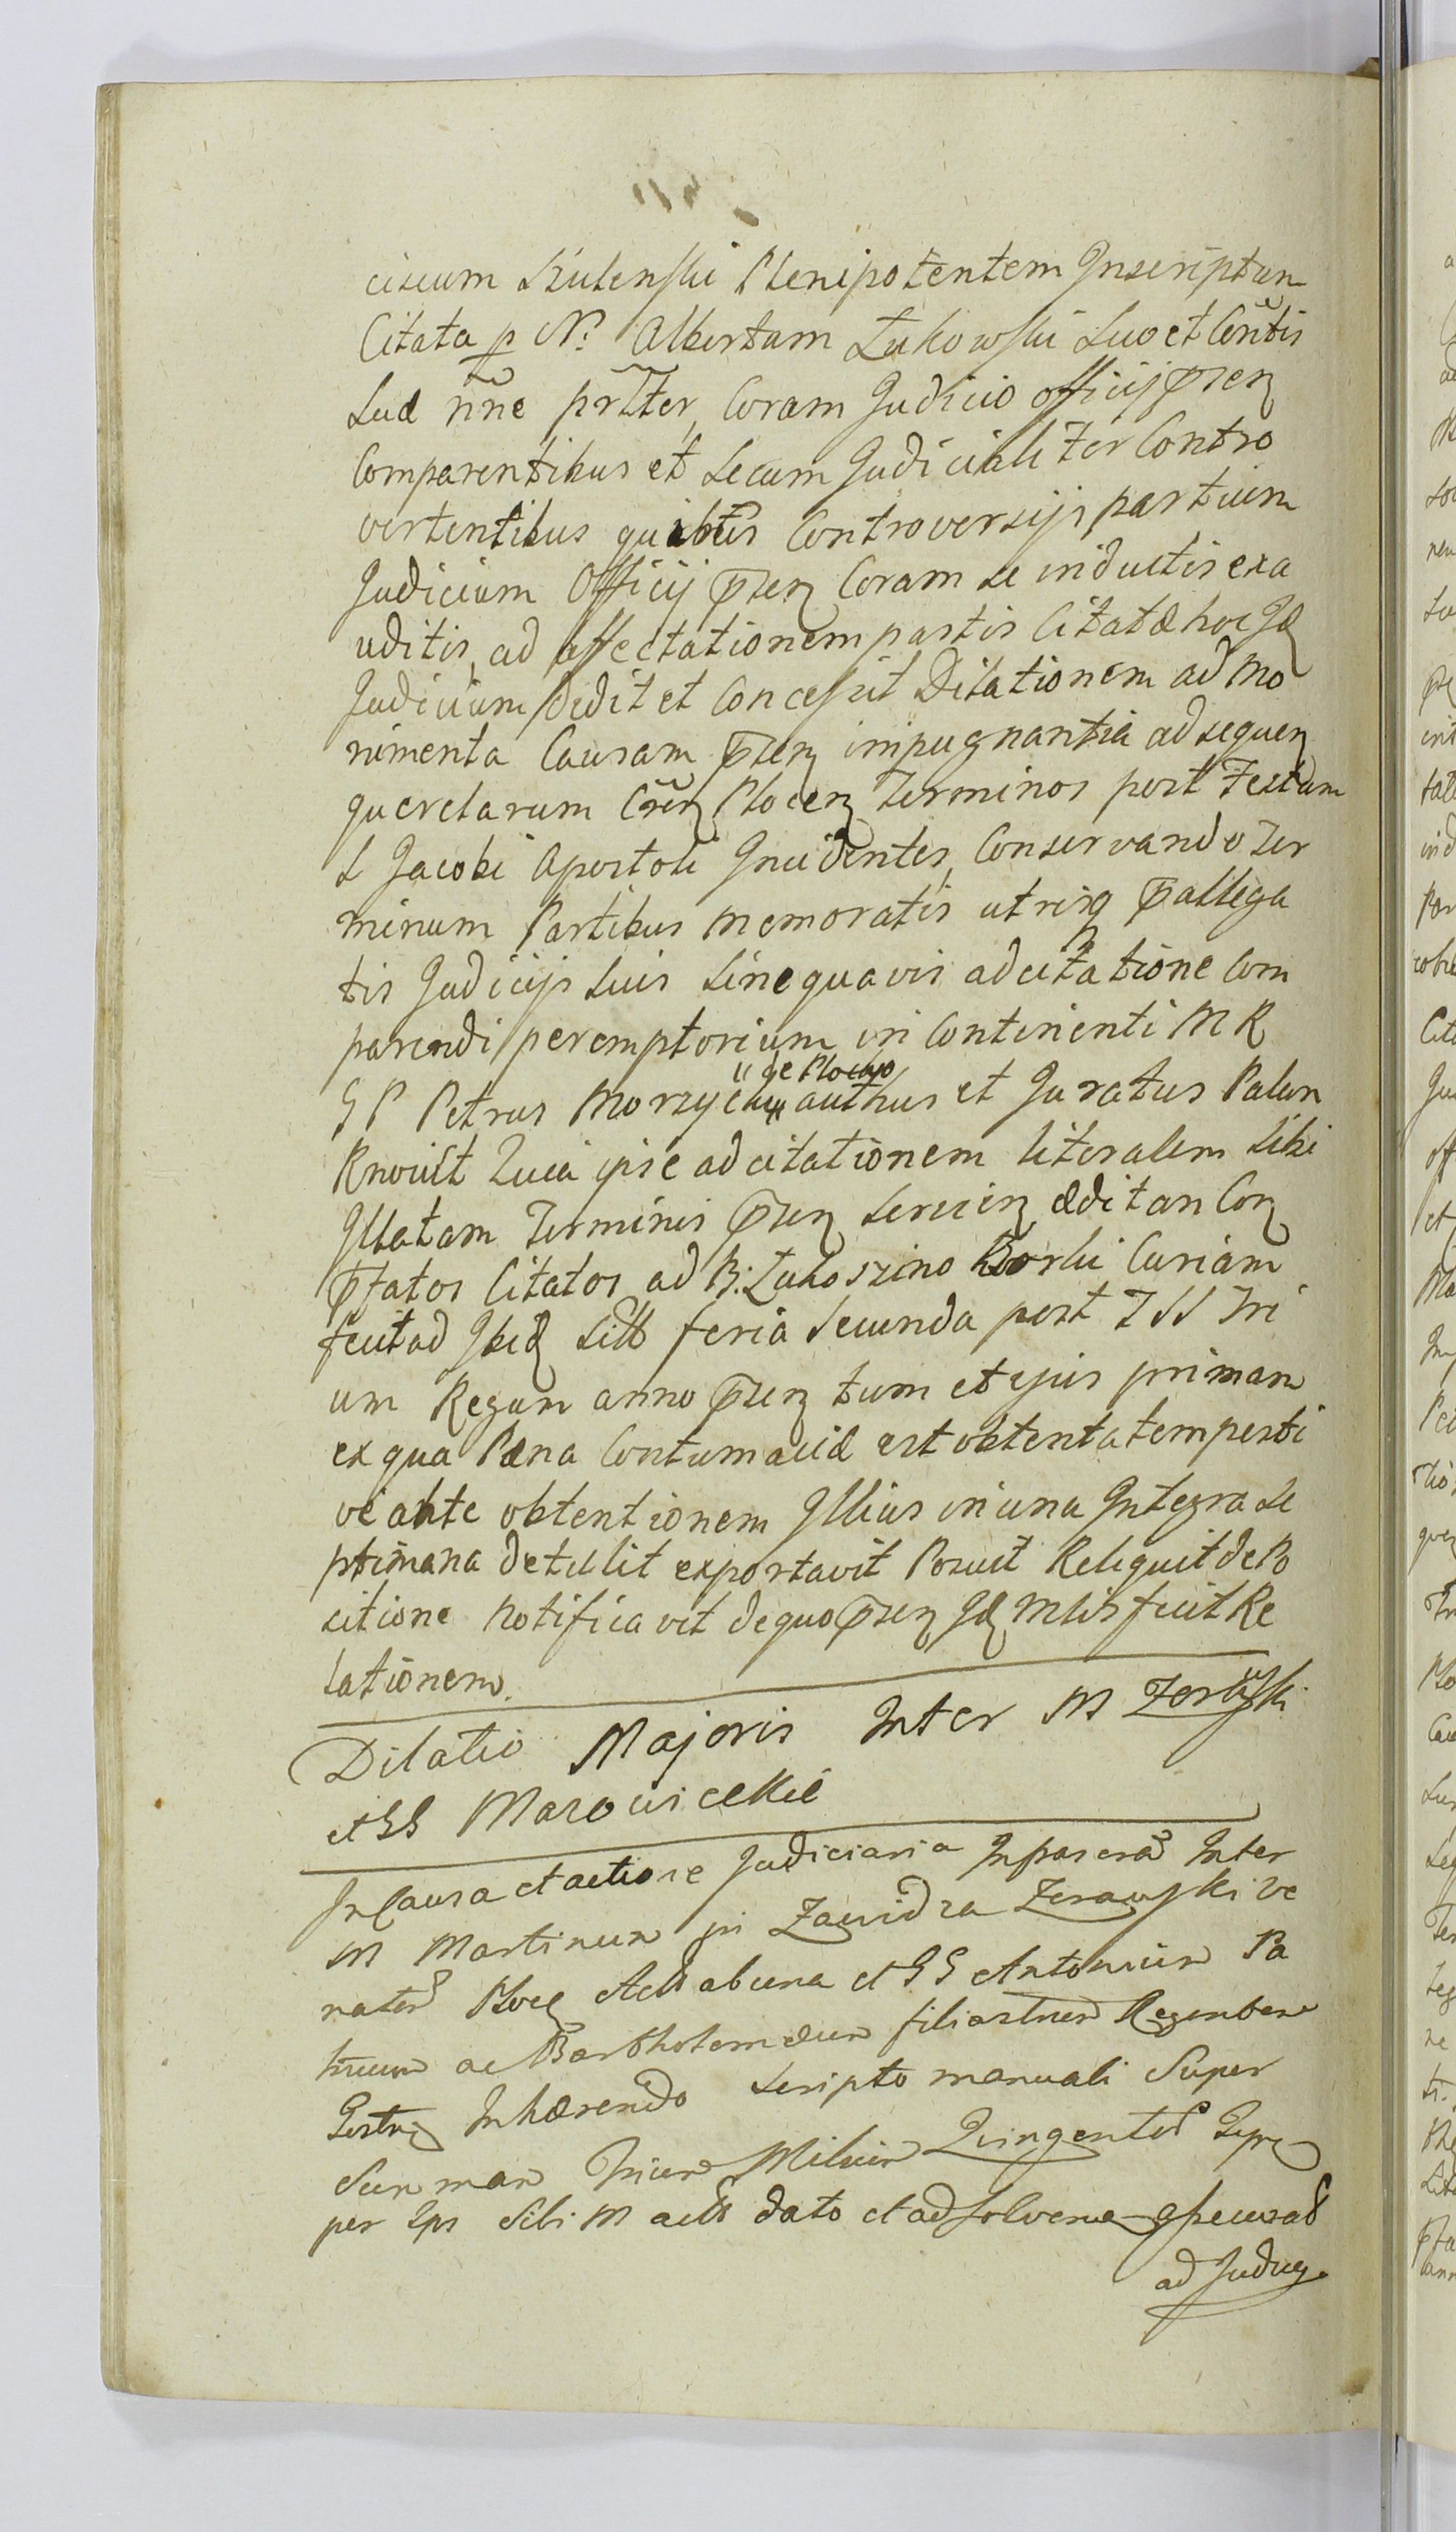 cisium Szulenski Plenipotentem Inscriptum
Citata p N. Albertum Łukowski Suo et Contis
Suæ nne prtter, Coram Judicio officij Pren
Comparentibus et Secum Judicialiter Contro
vertentibus quibus Controversijs partium
Judicium Officij Pren Coram se inductis exa
uditis, ad affectationem partis Citatæ hoc Id
Judicium dedit et Concessit Dilationem ad Mo
nimenta Causam Pren impugnantia ad sequen
querelarum Cren Plocen Terminos post Festum
S Jacobi Apostoli Incidentes, Conservando Ter
minum Partibus memoratis utrisq Pallega
tis Judicijs suis sine quavis adcitatione Com
parendi peremptorium in Continenti M R
G P Petrus Morzycki authus et Juratus Palan
"de Plocko
Rnovit Quia ipse adcitationem literalem sibi
Illatam Terminis Pren servien æditan Con
Pfatos Citatos ad B: Łukoszino Borki Curiam
fecit ad Ibid sitt feria Secunda post F SS Tri
um Regum anno Pren tum et ejus primam
ex qua Pæna Contumaciæ est obtenta tempesti
ve ante obtentionem Illius in una Integra Se
ptimana detulit exportavit Posuit Reliquit de Po
sitione Notificavit de quo Pren Id Mtis fecit Re
lationem.
Dilatio Majoris Inter M
et GG Mazowieckie
In Causa et actione Judiciaria Inter
M Martinum in Zawidza Zerawski Ve
nator Ploce Act ab una et GG Antonium Pa
truum ac Bartholomæum filiastrum
Inhærendo Scripto manuali Super
Summan Trium Milium Quingentor
per Ips Sibi M act dato et ad solven
ad Judicy